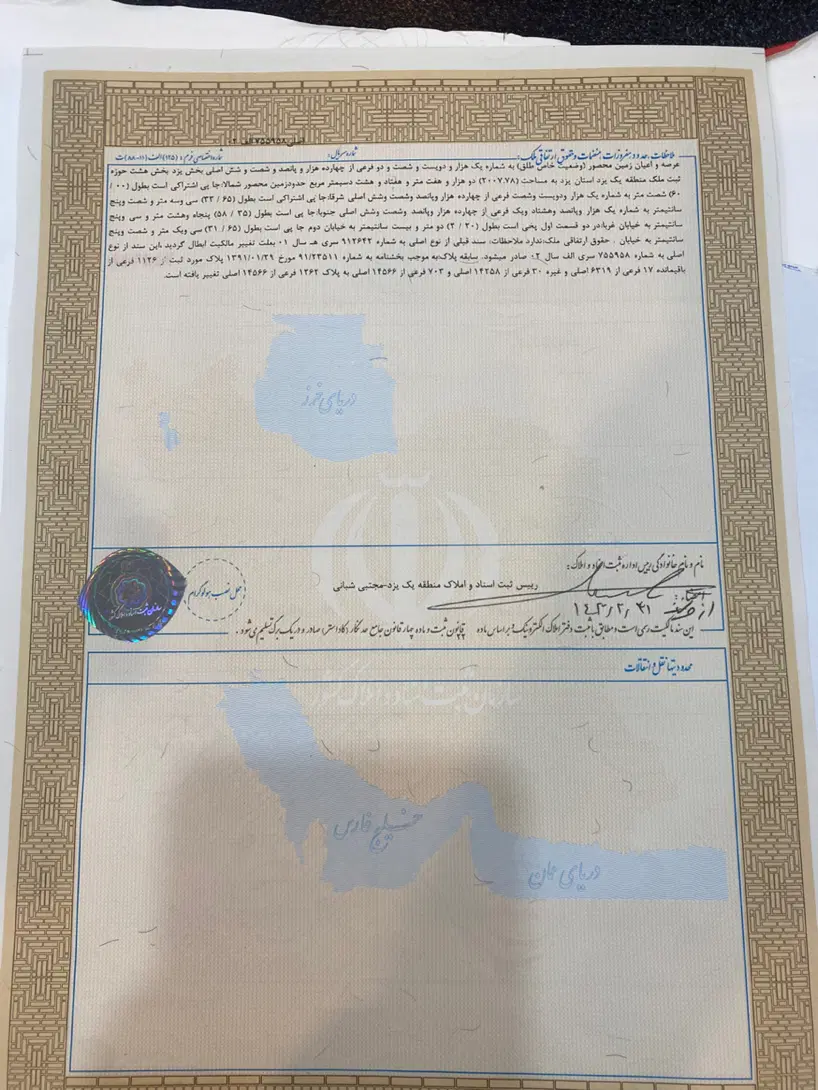 ملاحظات، حدود و مفروزات، منضمات و حقوق ارتفاقی ملک: شماره سریال: شماره اختصاصی فرم: (۱۲۵) الف (۱۱-۸۸) ت
عرصه و اعیان زمین محصور (وضعیت خاص طلق) به شماره یک هزار و دویست و شصت و دو فرعی از چهارده هزار و پانصد و شصت و شش اصلی بخش یزد بخش هشت حوزه
ثبت ملک منطقه یک یزد استان یزد به مساحت (۲۰۰۷.۷۸) دو هزار و هفت متر و هفتاد و هشت دسیمتر مربع حدودزمین محصور شمالا:جا پی اشتراکی است بطول (۰۰ /
۶۰) شصت متر به شماره یک هزار ودویست وشصت فرعی از چهارده هزار وپانصد وشصت وشش اصلی شرقا:جا پی اشتراکی است بطول (۶۵ / ۳۳) سی وسه متر و شصت وپنج
سانتیمتر به شماره یک هزار وپانصد وهشتاد ویک فرعی از چهارده هزار وپانصد وشصت وشش اصلی جنوبا:جا پی است بطول (۳۵ / ۵۸) پنجاه وهشت متر و سی وپنج
سانتیمتر به خیابان غربا:در دو قسمت اول پخی است بطول (۲۰ / ۲) دو متر و بیست سانتیمتر به خیابان دوم جا پی است بطول (۶۵ / ۳۱) سی ویک متر و شصت وپنج
سانتیمتر به خیابان . حقوق ارتفاقی ملک:ندارد ملاحظات: سند قبلی از نوع اصلی به شماره ۹۱۲۶۴۲ سری هـ سال ۰۱ بعلت تغییر مالکیت ابطال گردید ،این سند از نوع
اصلی به شماره ۷۵۵۹۵۸ سری الف سال ۰۲ صادر میشود. سابقه پلاک:به موجب بخشنامه به شماره ۹۱/۲۳۵۱۱ مورخ ۱۳۹۱/۰۱/۲۹ پلاک مورد ثبت از ۱۱۲۶ فرعی از
باقیمانده ۱۷ فرعی از ۶۳۱۹ اصلی و غیره ۳۰ فرعی از ۱۴۲۵۸ اصلی و ۷۰۳ فرعی از ۱۴۵۶۶ اصلی به پلاک ۱۲۶۲ فرعی از ۱۴۵۶۶ اصلی تغییر یافته است.
دریای خزر
نام و نام خانوادگی رییس اداره ثبت اسناد و املاک:
رییس ثبت اسناد و املاک منطقه یک یزد-مجتبی شبانی
محل نصب هولوگرام
امضاء:
این سند مالکیت رسمی است و مطابق با ثبت دفتر املاک الکترونیک و براساس ماده قانون ثبت و ماده چهار قانون جامع حدنگار (کاداستر) صادر و در یک برگ تسلیم می شود .
محدودیتها نقل و انتقالات
خلیج فارس
دریای عمان